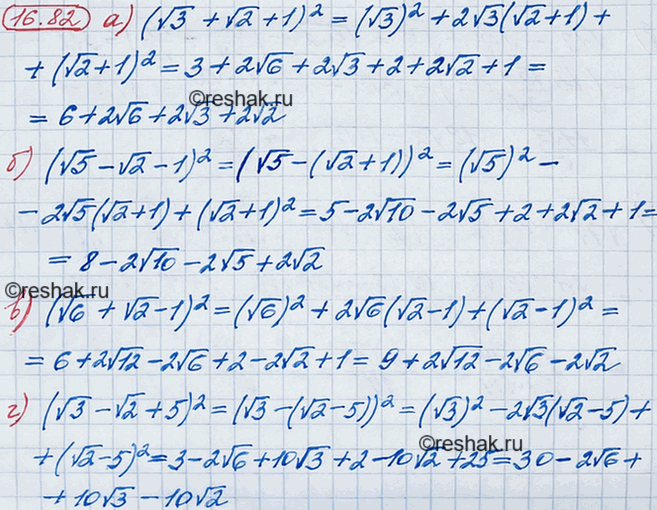 16.82 а) (√3 + √2 + 1)² = (√3)² + 2√3(√2+1) +
+ (√2+1)² = 3 + 2√6 + 2√3 + 2 + 2√2 + 1 =
©reshak.ru
= 6 + 2√6 + 2√3 + 2√2
б) (√5 - √2 - 1)² = (√5 - (√2+1))² = (√5)² -
- 2√5(√2+1) + (√2+1)² = 5 - 2√10 - 2√5 + 2 + 2√2 + 1 =
= 8 - 2√10 - 2√5 + 2√2
©reshak.ru
в) (√6 + √2 - 1)² = (√6)² + 2√6(√2-1) + (√2-1)² =
= 6 + 2√12 - 2√6 + 2 - 2√2 + 1 = 9 + 2√12 - 2√6 - 2√2
г) (√3 - √2 + 5)² = (√3 - (√2-5))² = (√3)² - 2√3(√2-5) +
©reshak.ru
+ (√2-5)² = 3 - 2√6 + 10√3 + 2 - 10√2 + 25 = 30 - 2√6 +
+ 10√3 - 10√2